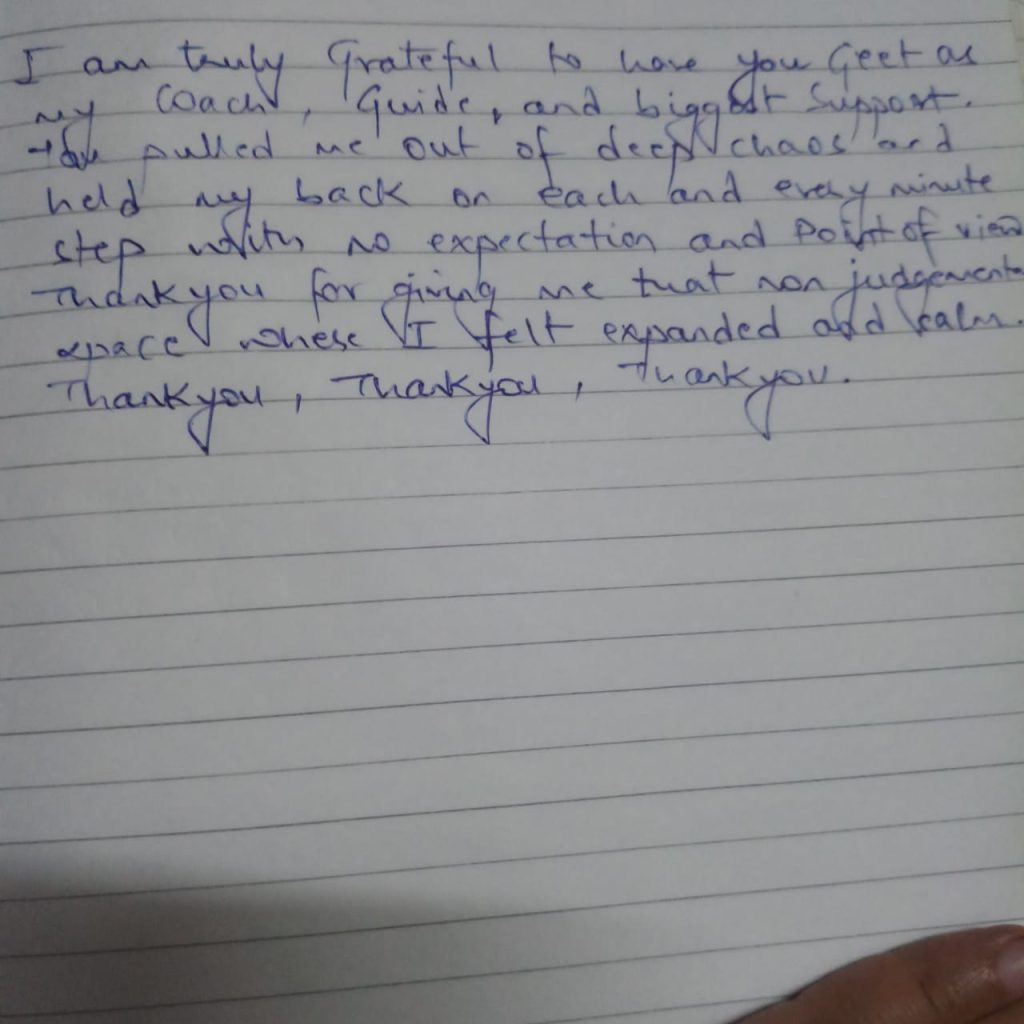 I am truly Grateful to have you Geet as
my Coach, Guide, and biggest Support.
You pulled me out of deep chaos and
held my back on each and every minute
step with no expectation and Point of view
Thankyou for giving me that non judgemental
space where I felt expanded and calm.
Thankyou, Thankyou, Thankyou.